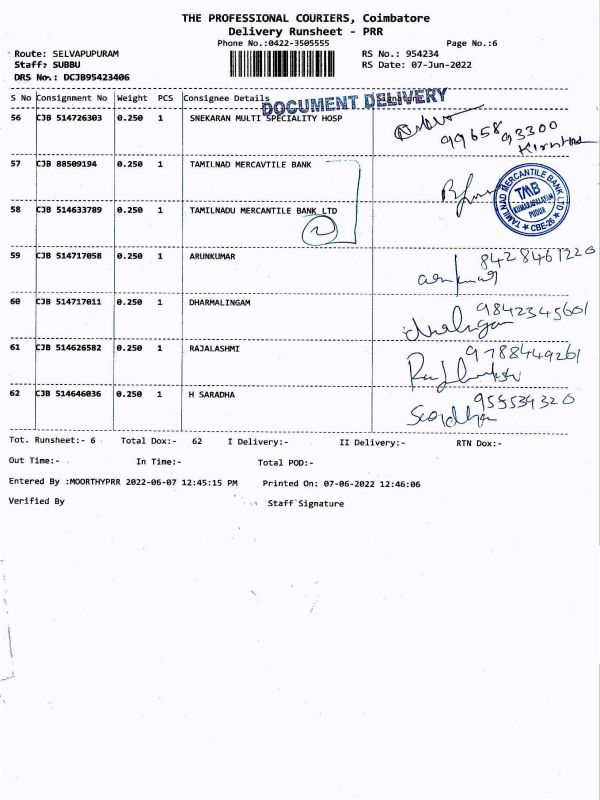 THE PROFESSIONAL COURIERS, Coimbatore
Delivery Runsheet - PRR
Phone No.:0422-3505555
Page No.:6
Route: SELVAPUPURAM
RS No.: 954234
Staff: SUBBU
RS Date: 07-Jun-2022
DRS No.: DCJB95423406
S No Consignment No Weight PCS Consignee Details
DOCUMENT DELIVERY
56 CJB 514726303 0.250 1 SNEKARAN MULTI SPECIALITY HOSP
99658 93300
57 CJB 88509194 0.250 1 TAMILNAD MERCAVTILE BANK
TAMILNAD MERCANTILE BANK LTD
TMB
PUDUR
CBE-26
58 CJB 514633789 0.250 1 TAMILNADU MERCANTILE BANK LTD
2
59 CJB 514717058 0.250 1 ARUNKUMAR
8428461220
60 CJB 514717011 0.250 1 DHARMALINGAM
9842345601
61 CJB 514626582 0.250 1 RAJALASHMI
9788449261
62 CJB 514646036 0.250 1 H SARADHA
955539320
Saradha
Tot. Runsheet:- 6 Total Dox:- 62 I Delivery:- II Delivery:- RTN Dox:-
Out Time:- In Time:- Total POD:-
Entered By :MOORTHYPRR 2022-06-07 12:45:15 PM Printed On: 07-06-2022 12:46:06
Verified By Staff Signature